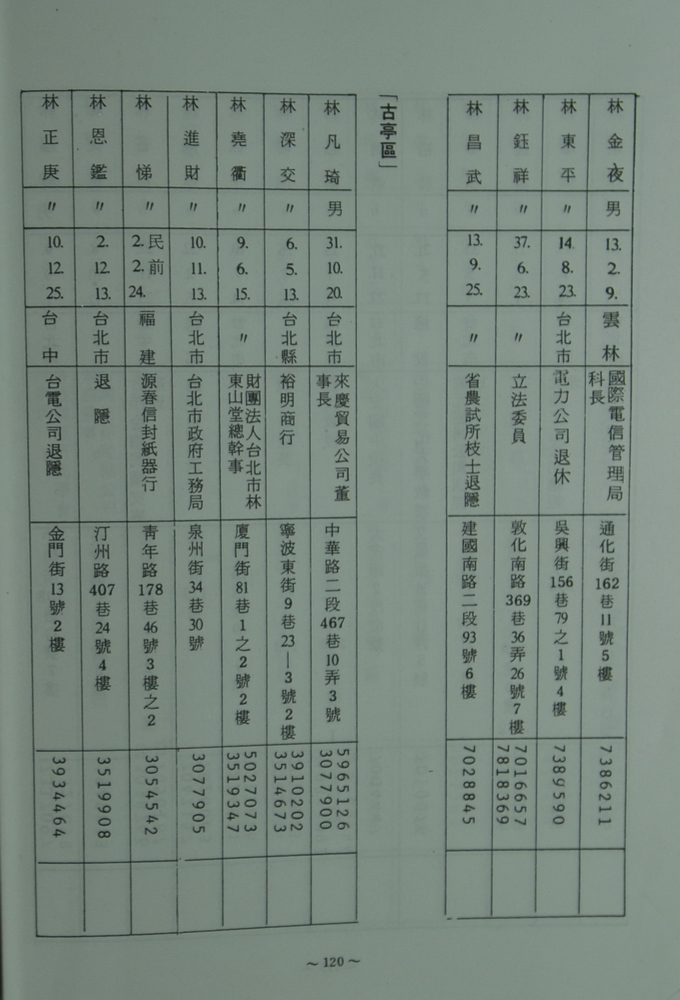 林金夜
男
13. 2. 9.
雲林
國際電信管理局
科長
通化街162巷11號5樓
7386211
林東平
〃
14. 8. 23.
台北市
電力公司退休
吳興街156巷79之1號4樓
7389590
林鈺祥
〃
37. 6. 23.
〃
立法委員
敦化南路369巷36弄26號7樓
7016657
7818369
林昌武
〃
13. 9. 25.
〃
省農試所枝士退隱
建國南路二段93號6樓
7028845
「古亭區」
林凡琦
男
31. 10. 20.
台北市
來慶貿易公司董
事長
中華路二段467巷10弄3號
5965126
3077900
林深交
〃
6. 5. 13.
台北縣
裕明商行
寧波東街9巷23—3號2樓
3910202
3514673
林堯衢
〃
9. 6. 15.
〃
財團法人台北市林
東山堂總幹事
廈門街81巷1之2號2樓
5027073
3519347
林進財
〃
10. 11. 13.
台北市
台北市政府工務局
泉州街34巷30號
3077905
林悌
〃
民前
2. 2. 24.
福建
源春信封紙器行
青年路178巷46號3樓之2
3054542
林恩鑑
〃
2. 12. 13.
台北市
退隱
汀州路407巷24號4樓
3519908
林正庚
〃
10. 12. 25.
台中
台電公司退隱
金門街13號2樓
3934464
～120～